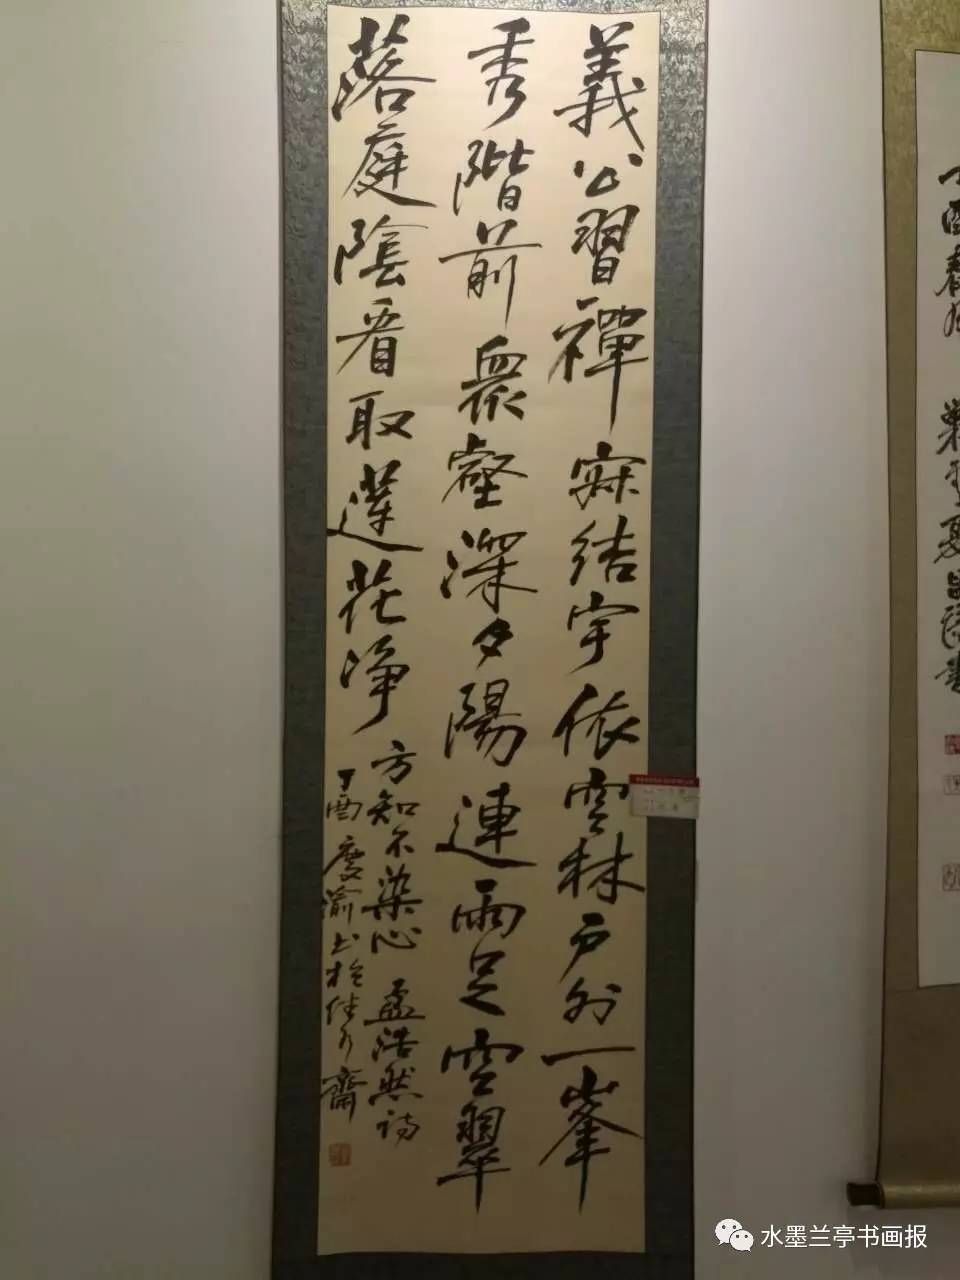 義公習禪寂結宇依空林戶外一峯
秀階前衆壑深夕陽連雨足空翠
落庭陰看取蓮花净
方知不染心 孟浩然詩
丁酉慶渝书於
齋
水墨兰亭书画报